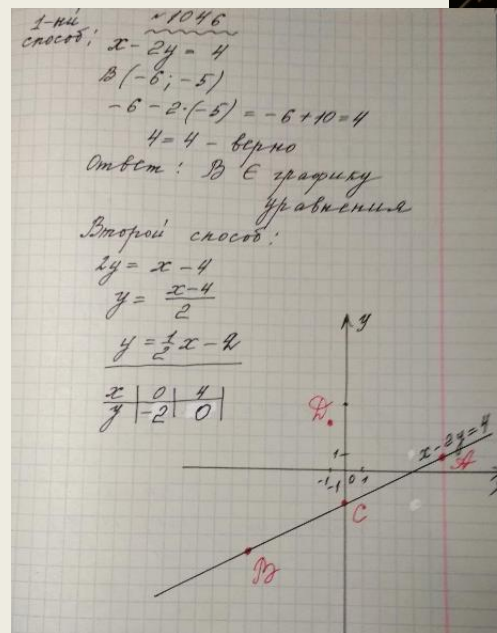 №1046
1-ый
способ:
x - 2y = 4
B(-6; -5)
-6 - 2·(-5) = -6 + 10 = 4
4 = 4 - верно
Ответ: B ∈ графику
уравнения
Второй способ:
2y = x - 4
y = \frac{x-4}{2}
y = \frac{1}{2}x - 2
x | 0 | 4 |
y | -2 | 0 |
y
D
x - 2y = 4
1
A
-1 0 1
-1
C
B